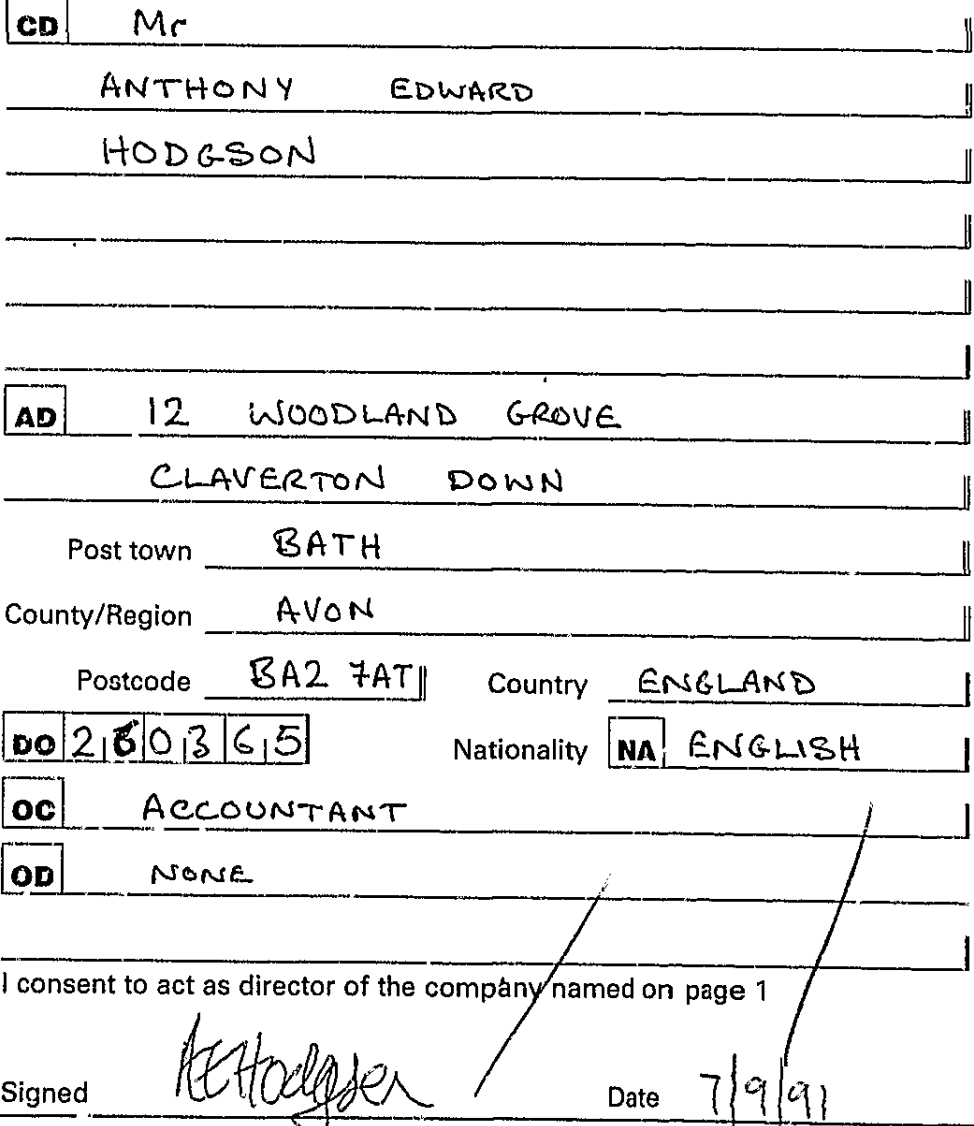 CD Mr
ANTHONY EDWARD
HODGSON
AD 12 WOODLAND GROVE
CLAVERTON DOWN
Post town BATH
County/Region AVON
Postcode BA2 7AT Country ENGLAND
DO 2 0 3 6 5 Nationality NA ENGLISH
OC ACCOUNTANT
OD NONE
I consent to act as director of the company named on page 1
Signed AEHodgson Date 7/9/91